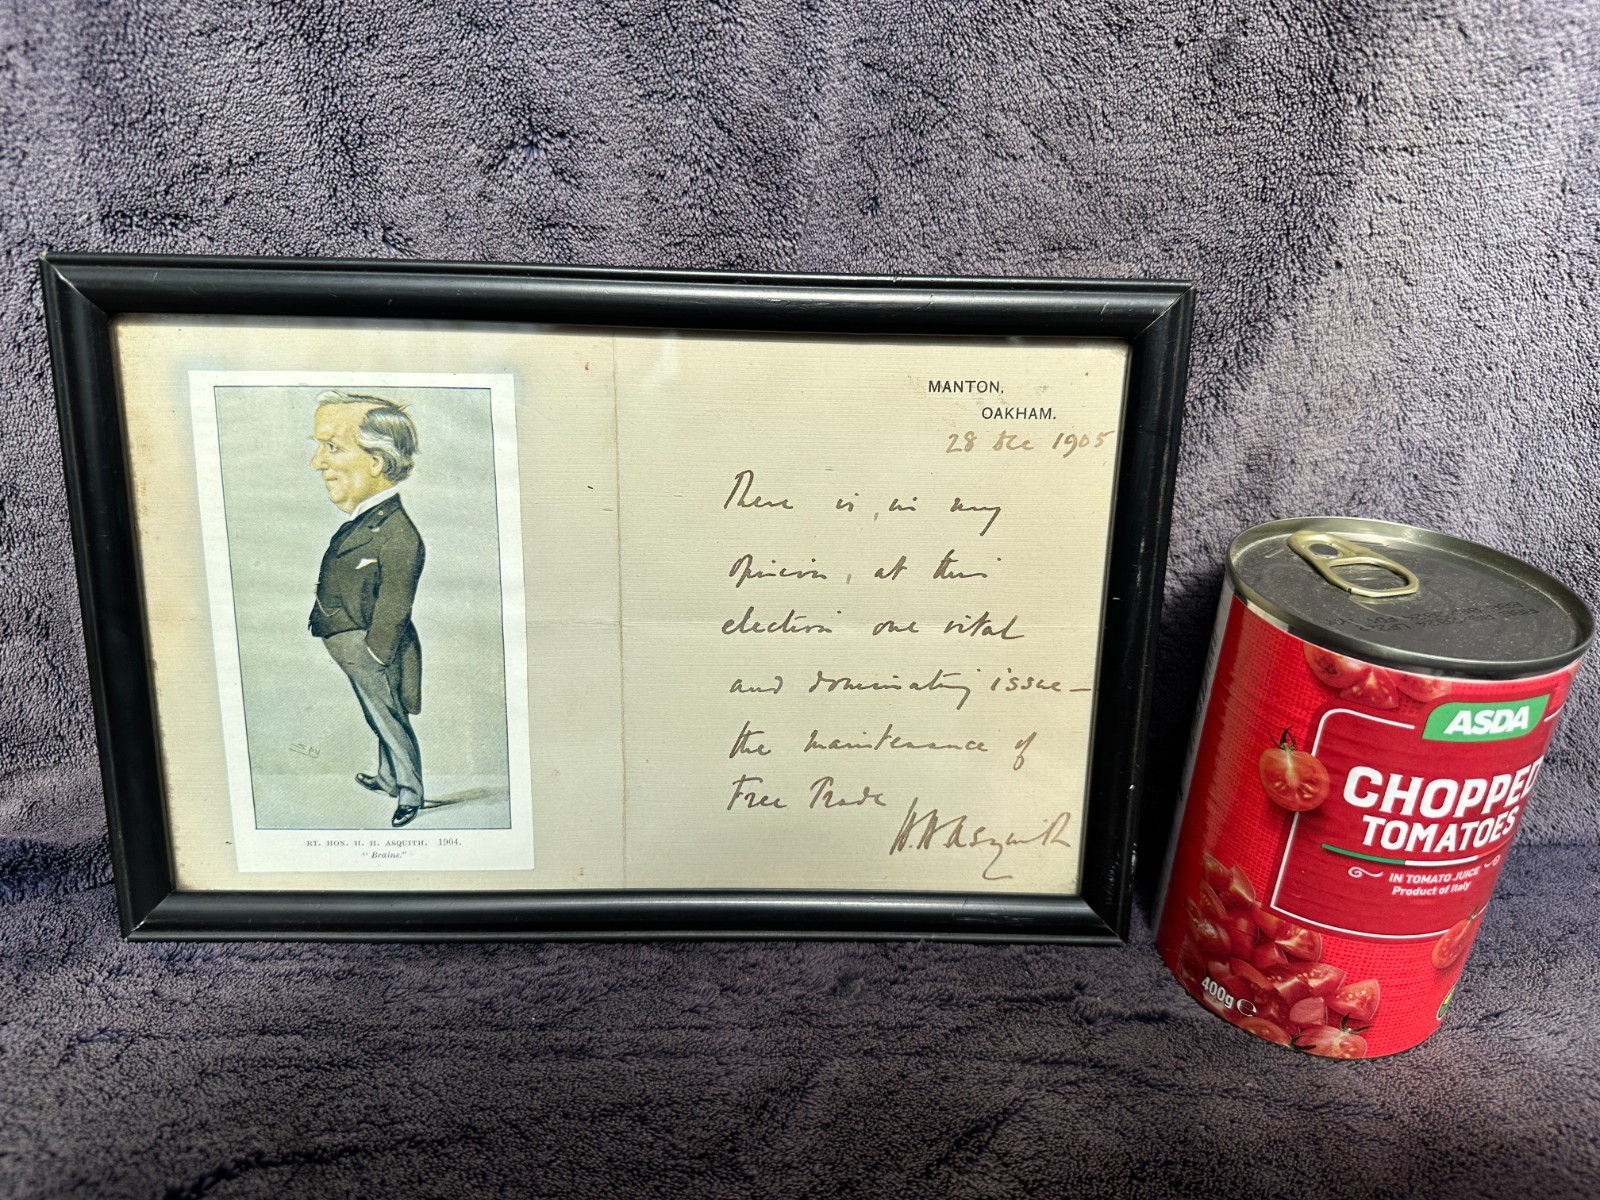 RT. HON. H. H. ASQUITH. 1904.
"Brains."
MANTON,
OAKHAM.
28 Dec 1905
There is, in my
opinion, at this
election one vital
and dominating issue —
the maintenance of
Free Trade
H. H. Asquith
ASDA
CHOPPED
TOMATOES
IN TOMATO JUICE
Product of Italy
400g ℮